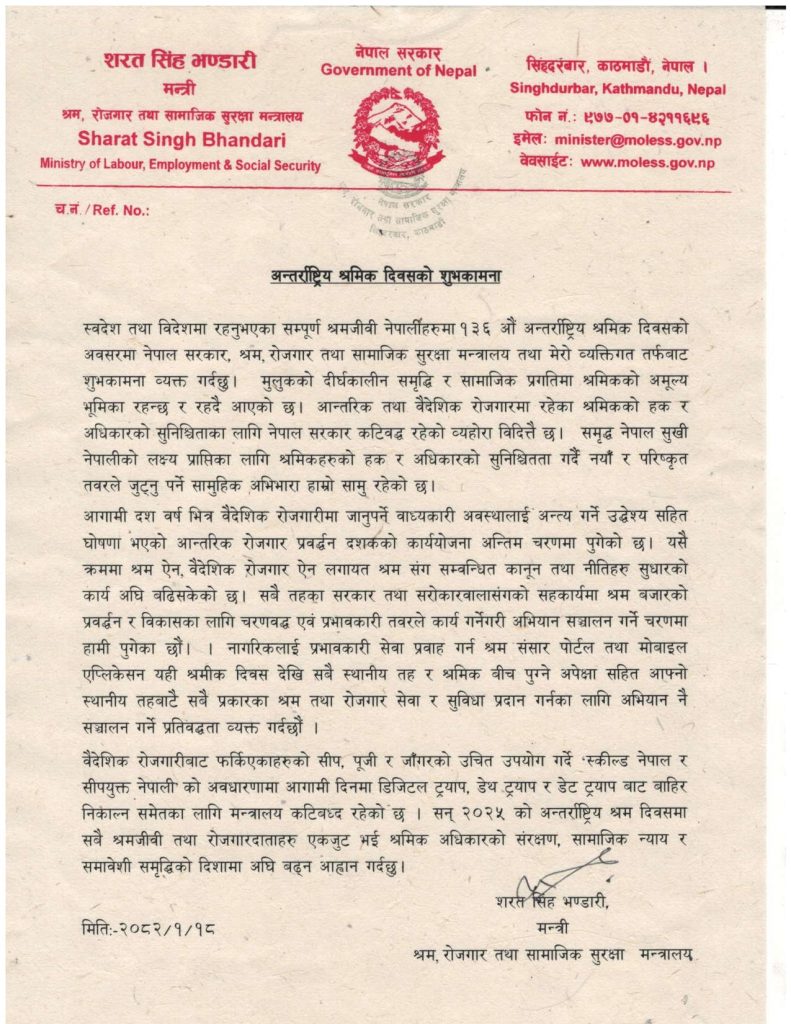 शरत सिंह भण्डारी
मन्त्री
श्रम, रोजगार तथा सामाजिक सुरक्षा मन्त्रालय
Sharat Singh Bhandari
Ministry of Labour, Employment & Social Security
नेपाल सरकार
Government of Nepal
सिंहदरबार, काठमाडौं, नेपाल ।
Singhdurbar, Kathmandu, Nepal
फोन नं.: ९७७-०१-४२११६९६
इमेल: minister@moless.gov.np
वेवसाईट: www.moless.gov.np
नेपाल सरकार
श्रम, रोजगार तथा सामाजिक सुरक्षा मन्त्रालय
सिंहदरबार, काठमाडौं
च.नं. /Ref. No.:
अन्तर्राष्ट्रिय श्रमिक दिवसको शुभकामना
स्वदेश तथा विदेशमा रहनुभएका सम्पूर्ण श्रमजीवी नेपालीहरुमा १३६ औं अन्तर्राष्ट्रिय श्रमिक दिवसको
अवसरमा नेपाल सरकार, श्रम, रोजगार तथा सामाजिक सुरक्षा मन्त्रालय तथा मेरो व्यक्तिगत तर्फबाट
शुभकामना व्यक्त गर्दछु। मुलुकको दीर्घकालीन समृद्धि र सामाजिक प्रगतिमा श्रमिकको अमूल्य
भूमिका रहन्छ र रहदै आएको छ। आन्तरिक तथा वैदेशिक रोजगारमा रहेका श्रमिकको हक र
अधिकारको सुनिश्चिताका लागि नेपाल सरकार कटिवद्ध रहेको व्यहोरा विदित्तै छ। समृद्ध नेपाल सुखी
नेपालीको लक्ष्य प्राप्तिका लागि श्रमिकहरुको हक र अधिकारको सुनिश्चितता गर्दै नयाँ र परिष्कृत
तवरले जुट्नु पर्ने सामुहिक अभिभारा हाम्रो सामु रहेको छ।
आगामी दश वर्ष भित्र वैदेशिक रोजगारीमा जानुपर्ने वाध्यकारी अवस्थालाई अन्त्य गर्ने उद्धेश्य सहित
घोषणा भएको आन्तरिक रोजगार प्रवर्द्धन दशकको कार्ययोजना अन्तिम चरणमा पुगेको छ। यसै
क्रममा श्रम ऐन, वैदेशिक रोजगार ऐन लगायत श्रम संग सम्बन्धित कानून तथा नीतिहरु सुधारको
कार्य अघि बढिसकेको छ। सबै तहका सरकार तथा सरोकारवालासंगको सहकार्यमा श्रम बजारको
प्रवर्द्धन र विकासका लागि चरणवद्ध एवं प्रभावकारी तवरले कार्य गर्नेगरी अभियान सञ्चालन गर्ने चरणमा
हामी पुगेका छौं। । नागरिकलाई प्रभावकारी सेवा प्रवाह गर्न श्रम संसार पोर्टल तथा मोबाइल
एप्लिकेसन यही श्रमीक दिवस देखि सबै स्थानीय तह र श्रमिक बीच पुग्ने अपेक्षा सहित आफ्नो
स्थानीय तहबाटै सबै प्रकारका श्रम तथा रोजगार सेवा र सुविधा प्रदान गर्नका लागि अभियान नै
सञ्चालन गर्ने प्रतिवद्धता व्यक्त गर्दछौं ।
वैदेशिक रोजगारीबाट फर्किएकाहरुको सीप, पूजी र जाँगरको उचित उपयोग गर्दे 'स्कील्ड नेपाल र
सीपयुक्त नेपाली' को अवधारणामा आगामी दिनमा डिजिटल ट्र्याप, डेथ ट्र्याप र डेट ट्र्याप बाट बाहिर
निकाल्न समेतका लागि मन्त्रालय कटिबध्द रहेको छ । सन् २०२५ को अन्तर्राष्ट्रिय श्रम दिवसमा
सबै श्रमजीवी तथा रोजगारदाताहरु एकजुट भई श्रमिक अधिकारको संरक्षण, सामाजिक न्याय र
समावेशी समृद्धिको दिशामा अघि बढ्न आह्वान गर्दछु।
शरत सिंह भण्डारी,
मन्त्री
श्रम, रोजगार तथा सामाजिक सुरक्षा मन्त्रालय
मिति:-२०८२/१/१८